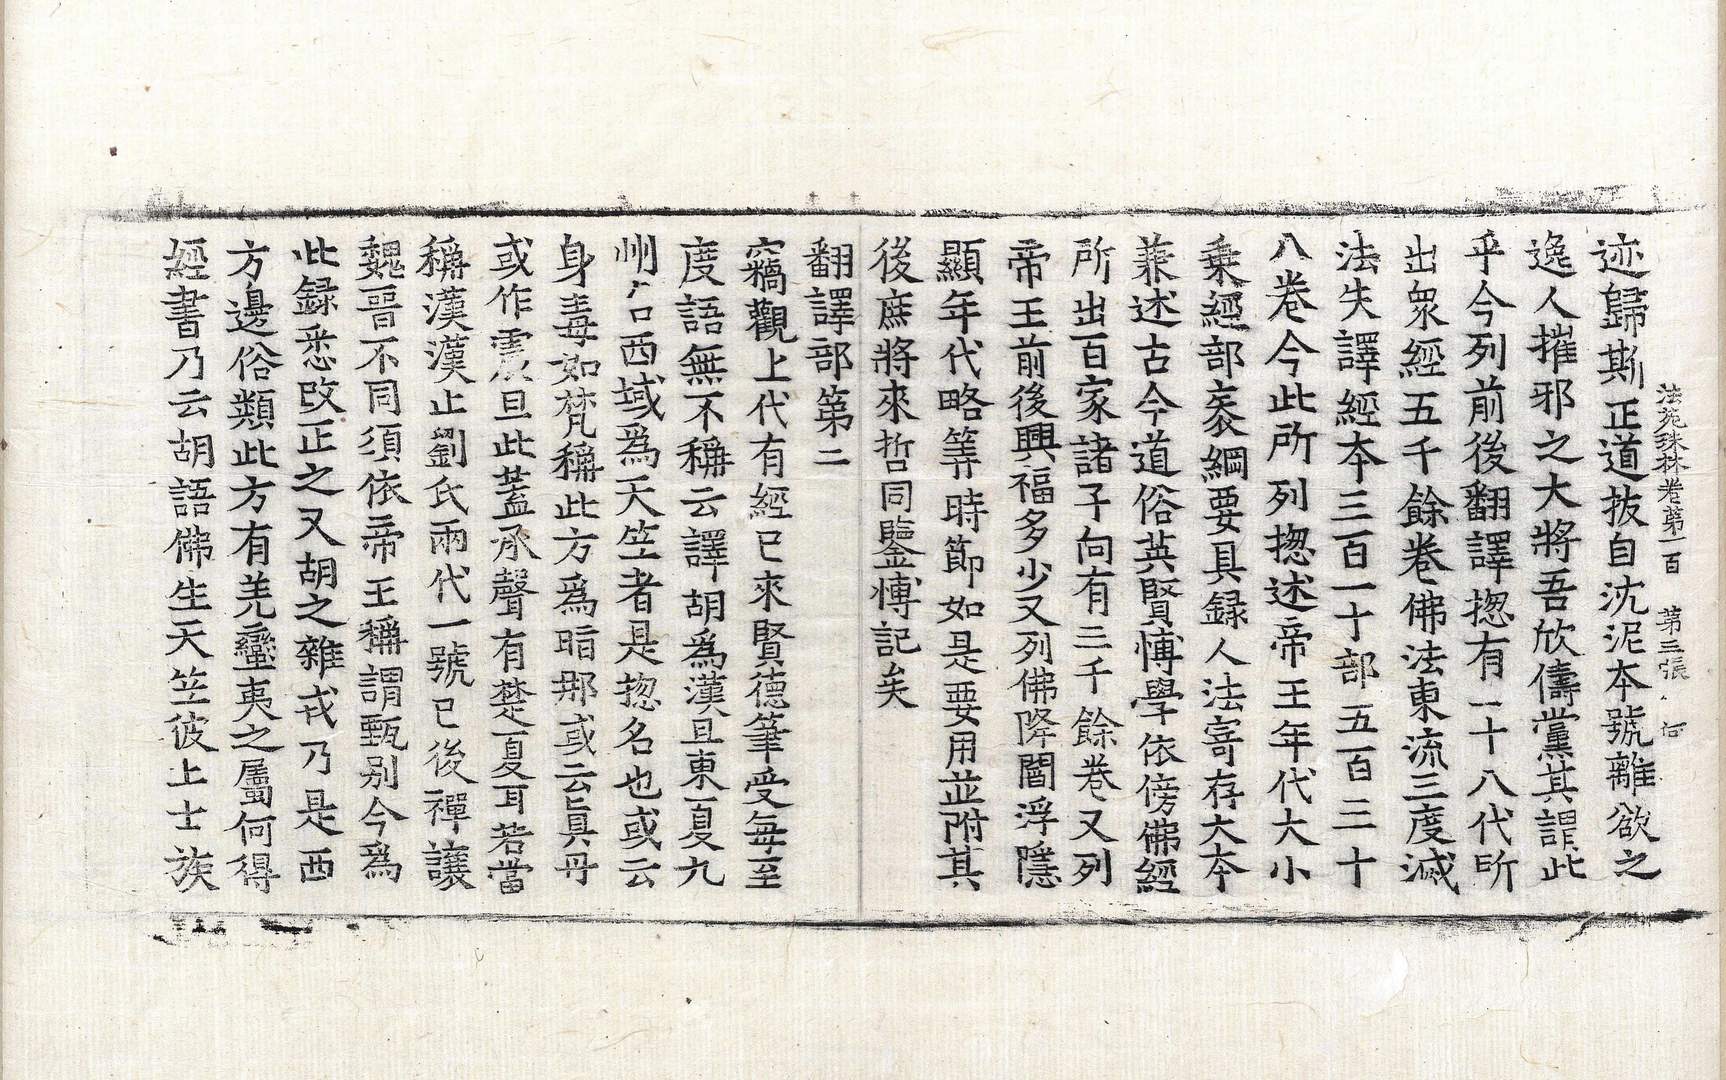 法苑珠林卷第一百 第三張 何
迹歸斯正道拔自沈泥本號離欲之
逸人摧邪之大將吾欣儔黨其謂此
乎今列前後翻譯揔有一十八代所
出衆經五千餘卷佛法東流三度滅
法失譯經本三百一十部五百三十
八卷今此所列揔述帝王年代大小
乗經部袠綱要具録人法寄存大本
兼述古今道俗英賢博學依傍佛經
所出百家諸子向有三千餘卷又列
帝王前後興福多少又列佛降閻浮隱
顯年代略等時節如是要用並附其
後庶將來哲同鑒博記矣
翻譯部第二
竊觀上代有經已來賢德筆受每至
度語無不稱云譯胡爲漢且東夏九
州名西域爲天竺者是揔名也或云
身毒如梵稱此方爲脂那或云真丹
或作震旦此蓋承聲有楚夏耳若當
稱漢漢止劉氏兩代一號已後禪讓
魏晋不同須依帝王稱謂甄别今爲
此録悉改正之又胡之雜戎乃是西
方邊俗類此方有羌蠻夷之屬何得
經書乃云胡語佛生天竺彼土士族